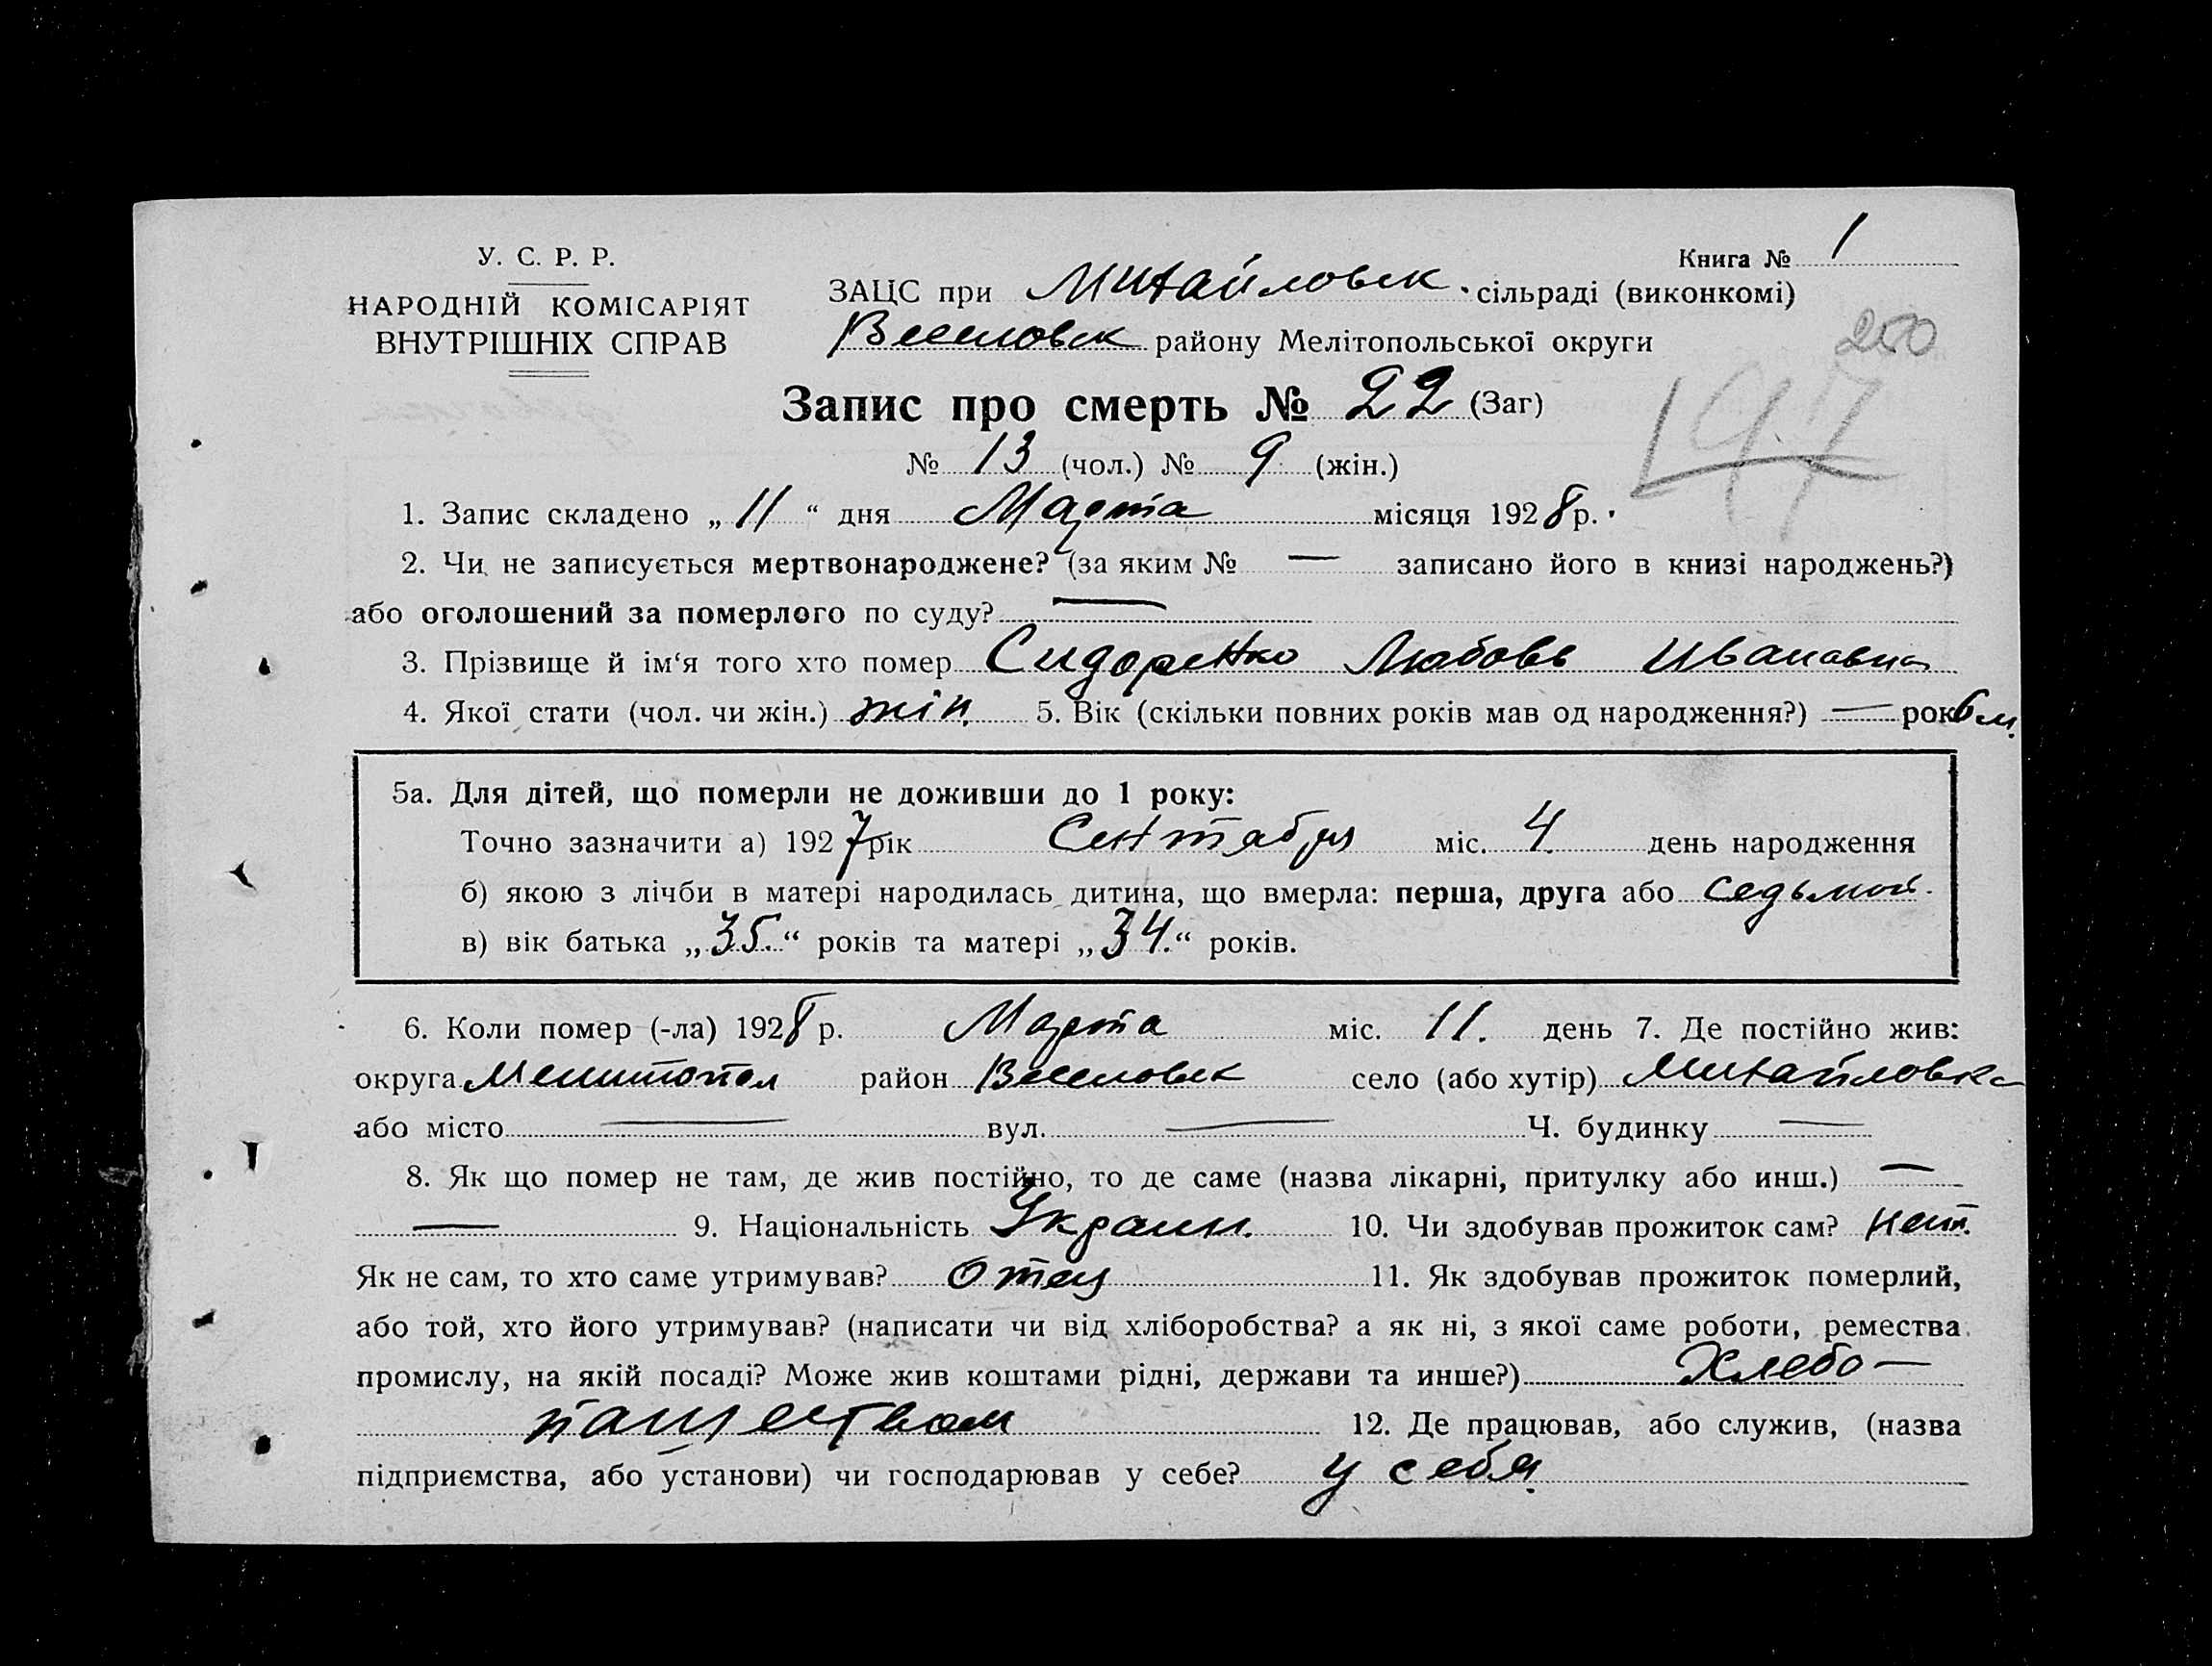 У. С. Р. Р.
НАРОДНІЙ КОМІСАРІЯТ
ВНУТРІШНІХ СПРАВ
Книга № 1
ЗАЦС при Михайловск. сільраді (виконкомі)
Веселовск районy Мелітопольської округи
250
197
Запис про смерть № 22 (Заг)
№ 13 (чол.) № 9 (жін.)
1. Запис складено „ 11 “ дня Марта місяця 1928 р.
2. Чи не записується мертвонароджене? (за яким № — записано його в книзі народжень?)
або оголошений за померлого по суду? —
3. Прізвище й ім‘я того хто помер Сидоренко Любовь Ивановна
4. Якої стати (чол. чи жін.) жін. 5. Вік (скільки повних років мав од народження?) — рок 6 м.
5а. Для дітей, що померли не доживши до 1 року:
Точно зазначити а) 1927 рік Сентября міс. 4. день народження
б) якою з лічби в матері народилась дитина, що вмерла: перша, друга або седьмой.
в) вік батька „ 35. “ років та матері „ 34. “ років.
6. Коли помер (-ла) 1928 р. Марта міс. 11. день 7. Де постійно жив:
округа Мелитопол район Веселовск село (або хутір) Михайловка
або місто — вул. — Ч. будинку —
8. Як що помер не там, де жив постійно, то де саме (назва лікарні, притулку або инш.) —
— 9. Національність Украин. 10. Чи здобував прожиток сам? Нет.
Як не сам, то хто саме утримував? Отец 11. Як здобував прожиток померлий,
або той, хто його утримував? (написати чи від хліборобства? а як ні, з якої саме роботи, ремества
промислу, на якій посаді? Може жив коштами рідні, держави та инше?) Хлебо—
пашеством 12. Де працював, або служив, (назва
підприємства, або установи) чи господарював у себе? у себя